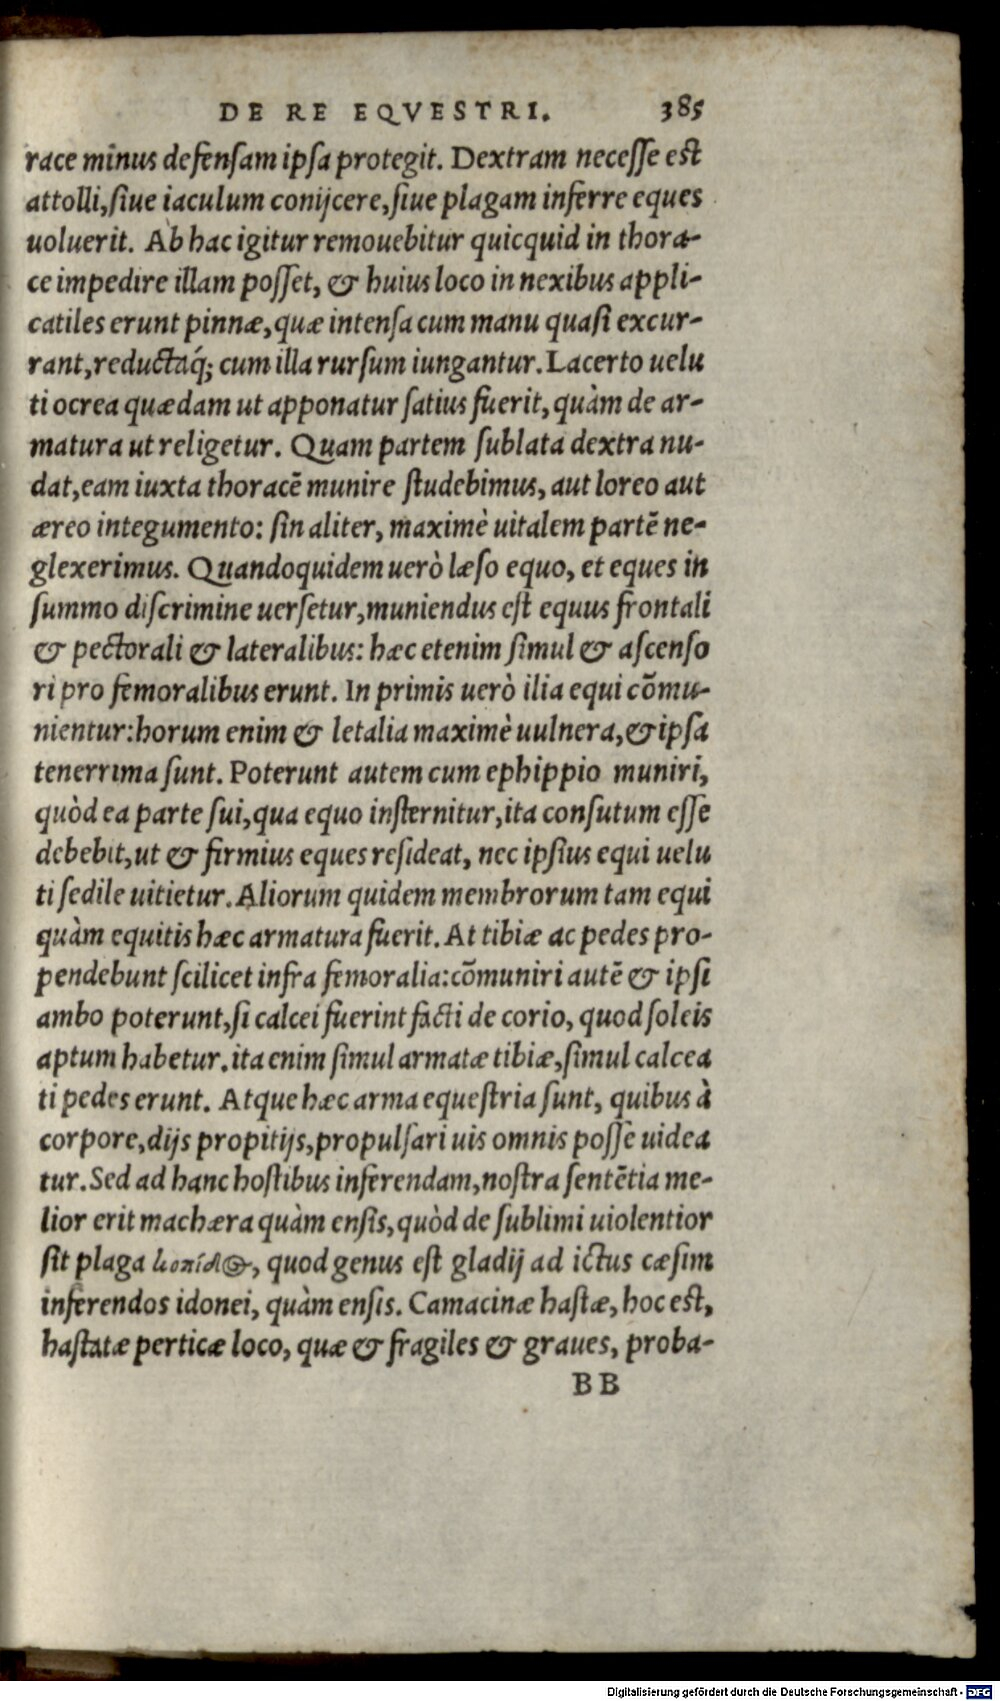 DE RE EQVESTRI. 385
race minus defensam ipsa protegit. Dextram necesse est
attolli, siue iaculum conijcere, siue plagam inferre eques
uoluerit. Ab hac igitur remouebitur quicquid in thora-
ce impedire illam posset, & huius loco in nexibus appli-
catiles erunt pinnæ, quæ intensa cum manu quasi excur-
rant, reductaq́; cum illa rursum iungantur. Lacerto uelu
ti ocrea quædam ut apponatur satius fuerit, quàm de ar-
matura ut religetur. Quam partem sublata dextra nu-
dat, eam iuxta thoracē munire studebimus, aut loreo aut
æreo integumento: sin aliter, maximè uitalem partē ne-
glexerimus. Quandoquidem uerò læso equo, et eques in
summo discrimine uersetur, muniendus est equus frontali
& pectorali & lateralibus: hæc etenim simul & ascenso
ri pro femoralibus erunt. In primis uerò ilia equi cōmu-
nientur: horum enim & letalia maximè uulnera, & ipsa
tenerrima sunt. Poterunt autem cum ephippio muniri,
quòd ea parte sui, qua equo insternitur, ita consutum esse
debebit, ut & firmius eques resideat, nec ipsius equi uelu
ti sedile uitietur. Aliorum quidem membrorum tam equi
quàm equitis hæc armatura fuerit. At tibiæ ac pedes pro-
pendebunt scilicet infra femoralia: cōmuniri autē & ipsi
ambo poterunt, si calcei fuerint facti de corio, quod soleis
aptum habetur. ita enim simul armatæ tibiæ, simul calcea
ti pedes erunt. Atque hæc arma equestria sunt, quibus à
corpore, dijs propitijs, propulsari uis omnis posse uidea
tur. Sed ad hanc hostibus inferendam, nostra sentētia me-
lior erit machæra quàm ensis, quòd de sublimi uiolentior
sit plaga κοπίδος, quod genus est gladij ad ictus cæsim
inferendos idonei, quàm ensis. Camacinæ hastæ, hoc est,
hastatæ perticæ loco, quæ & fragiles & graues, proba-
BB
Digitalisierung gefördert durch die Deutsche Forschungsgemeinschaft - DFG